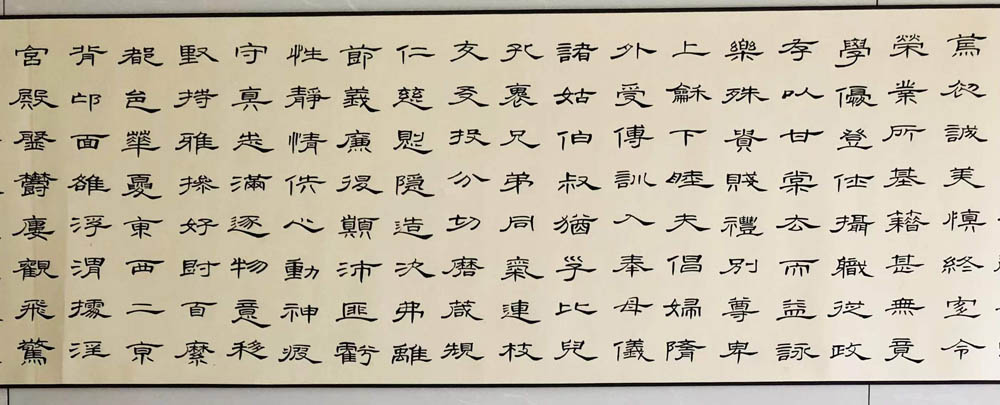 篤初誠美慎終宜令
榮業所基籍甚無竟
學優登仕攝職從政
存以甘棠去而益詠
樂殊貴賤禮別尊卑
上龢下睦夫倡婦隋
外受傅訓入奉母儀
諸姑伯叔猶子比兒
孔褱兄弟同氣連枝
交友投分切磨葴規
仁慈惻隱造次弗離
節義廉退顛沛匪虧
性靜情佚心動神疲
守真志滿逐物意移
堅持雅操好爵自縻
都邑華夏東西二京
背邙面雒浮渭據涇
宮殿盤鬱樓觀飛驚